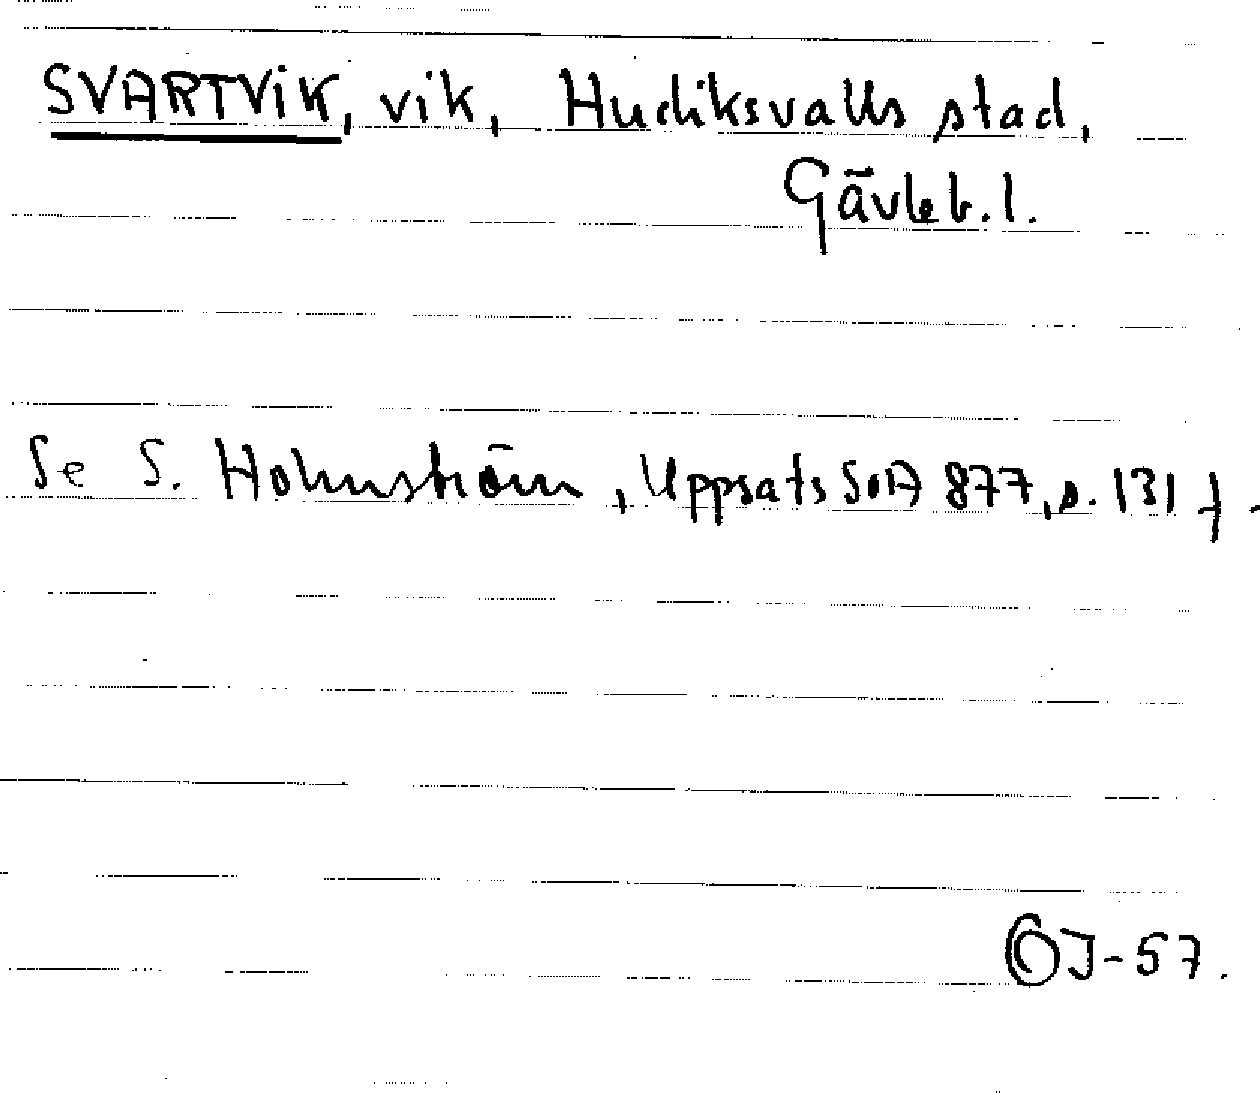 SVARTVIK, vik, Hudiksvalls stad,
Gävleb. l.
Se S. Holmström, Uppsats SOA 877, s. 131 f.
OJ-57.